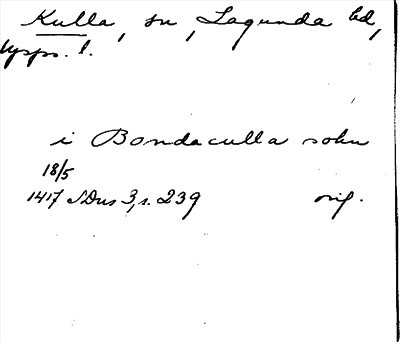 Kulla, sn, Lagunda hd,
Upps. l.
i Bondaculla sokn
18/5
1417 SDns 3, s. 239 orig.